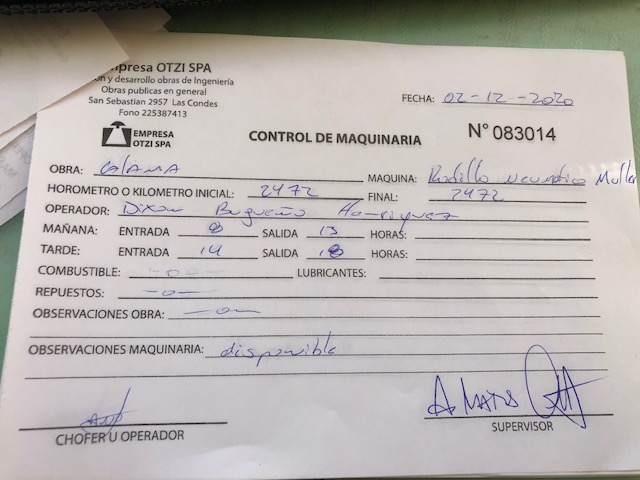 Empresa OTZI SPA
n y desarrollo obras de Ingeniería
Obras publicas en general
San Sebastian 2957 Las Condes
Fono 225387413
EMPRESA
OTZI SPA
CONTROL DE MAQUINARIA
N° 083014
FECHA: 02-12-2020
OBRA: MAQUINA: Rodillo Neumatico
HOROMETRO O KILOMETRO INICIAL: 2472 FINAL: 2472
OPERADOR:
MAÑANA: ENTRADA 8 SALIDA 13 HORAS:
TARDE: ENTRADA 14 SALIDA 18 HORAS:
COMBUSTIBLE: LUBRICANTES:
REPUESTOS: -0-
OBSERVACIONES OBRA: -0-
OBSERVACIONES MAQUINARIA: disponible
CHOFER U OPERADOR
SUPERVISOR